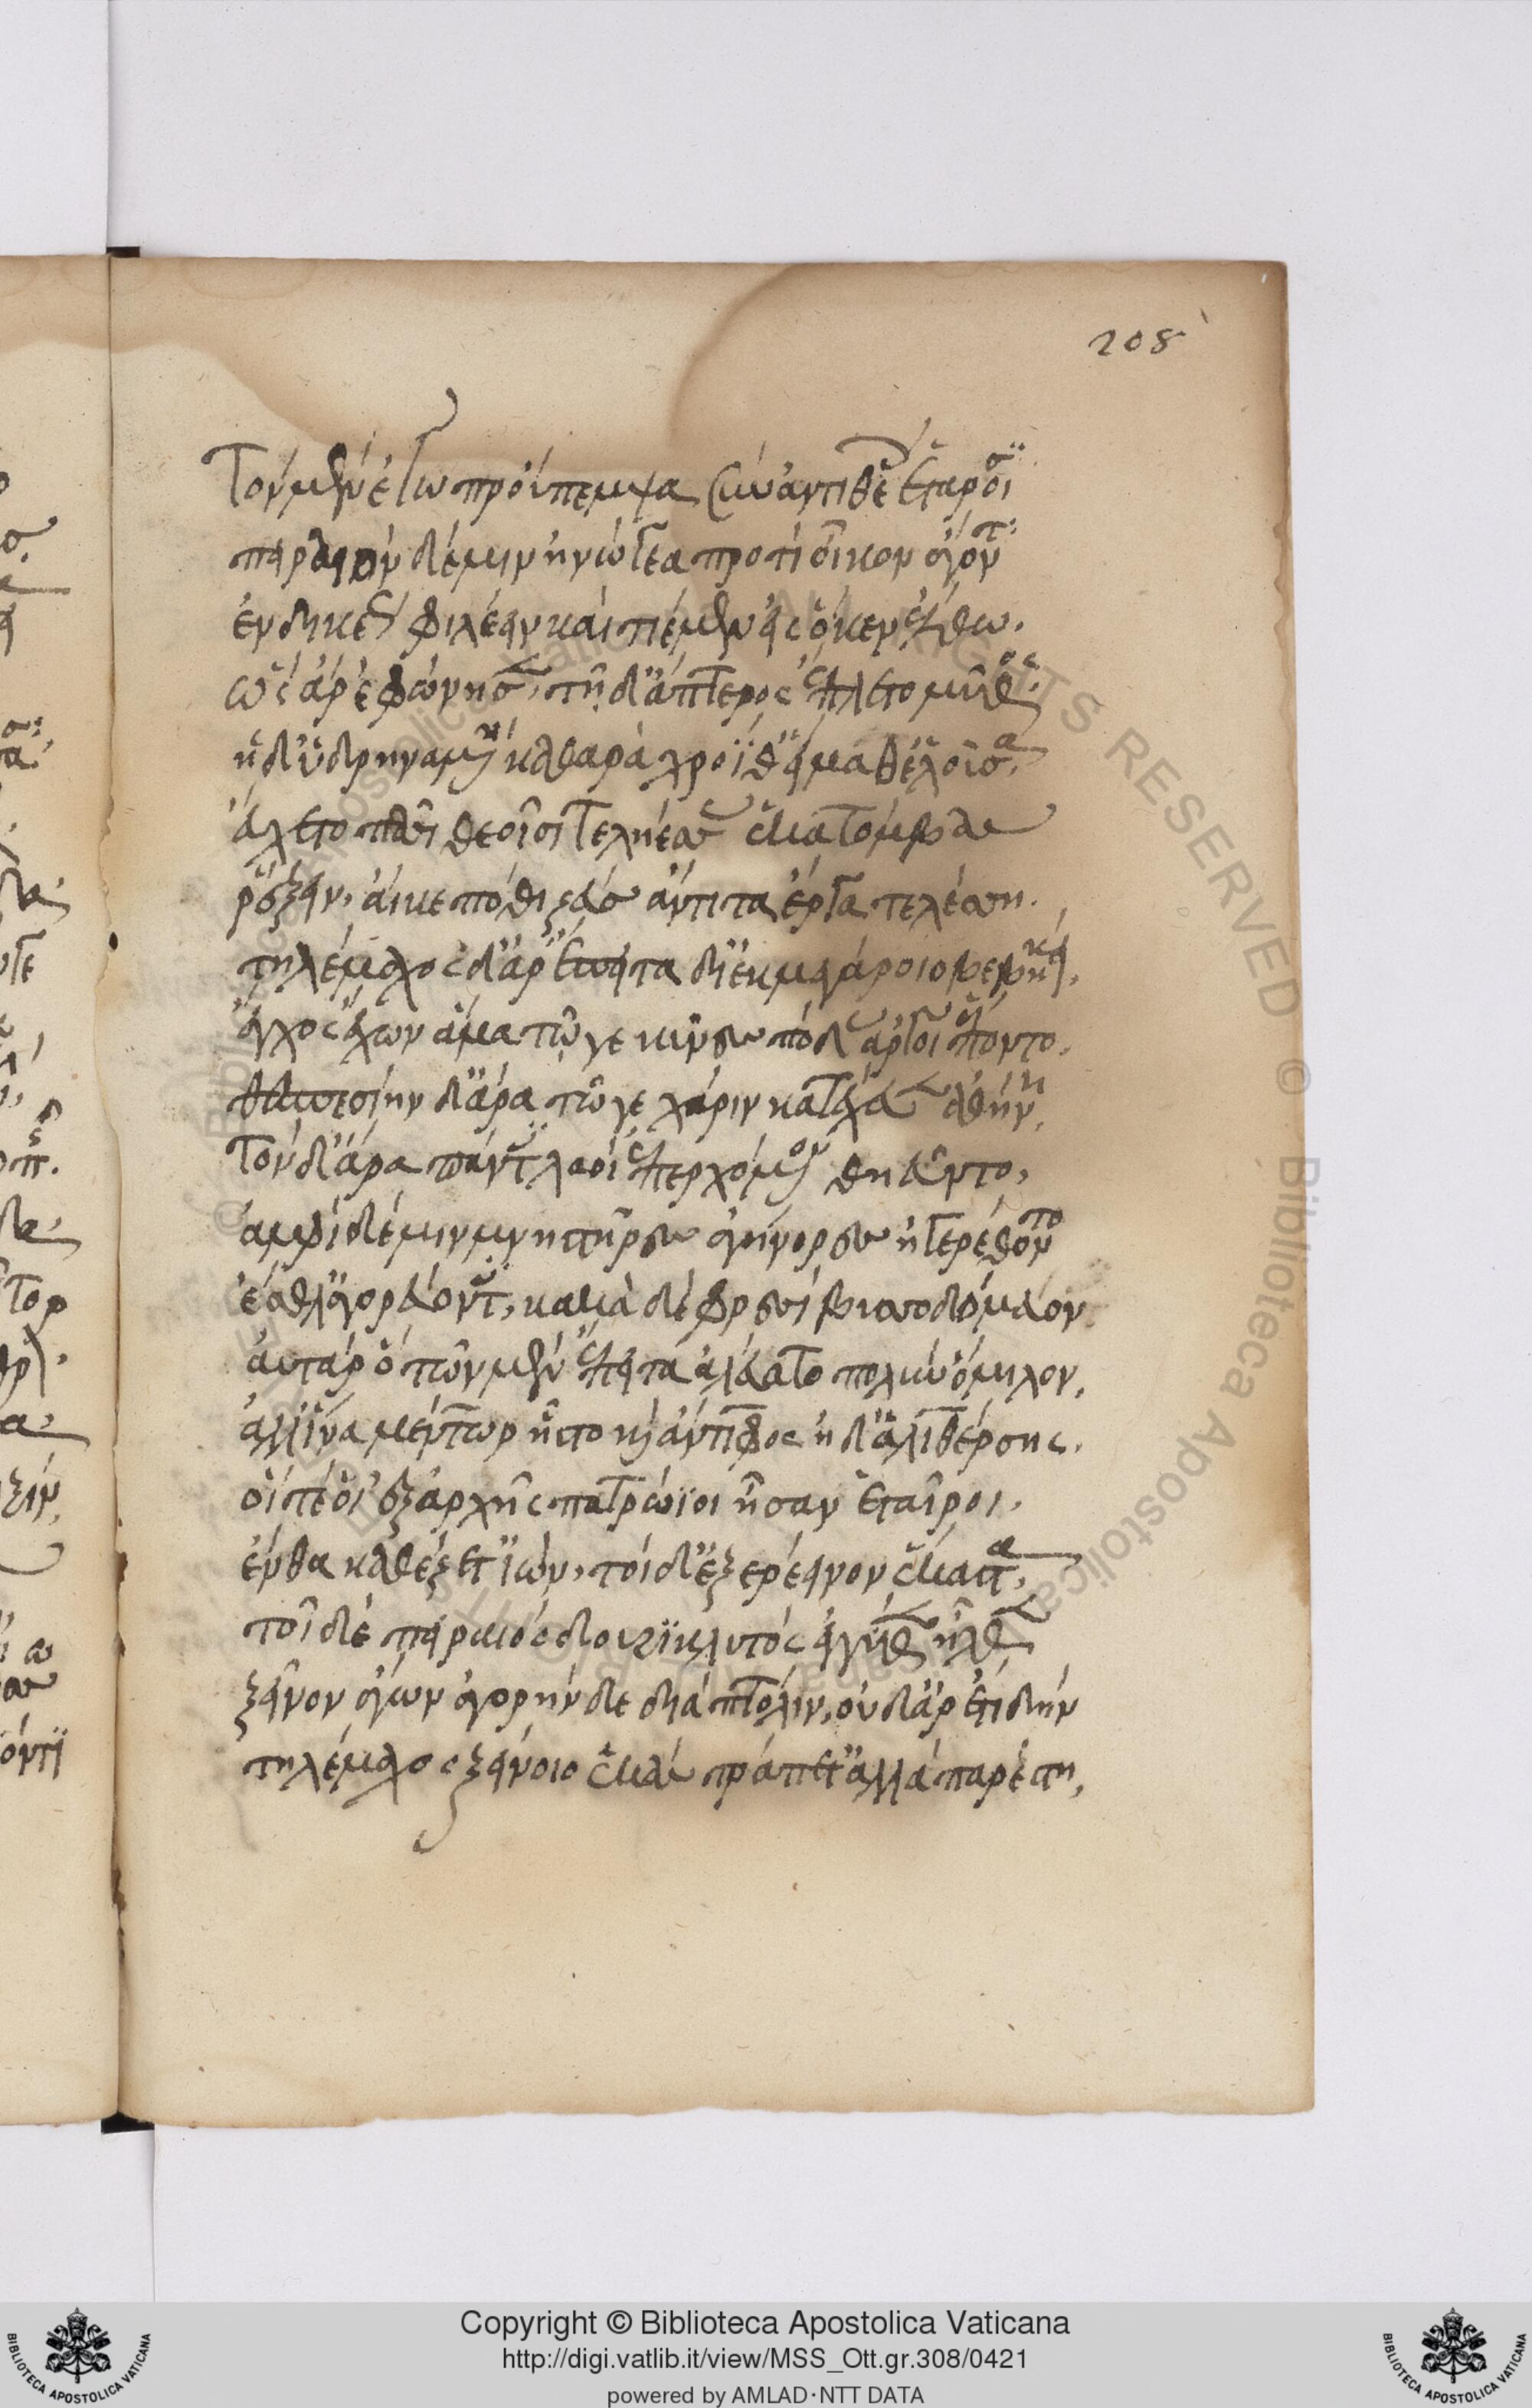 208
Τὸν μὲν ἐγὼ προὔπεμψα σὺν ἀντιθέοις ἑτάροισι
πείραιον δέ μιν ἠνώγεα προτὶ οἶκον ἄγοντα
ἐνδυκέως φιλέειν καὶ τιέμεν εἰς ὅ κεν ἔλθω.
ὣς ἄρ' ἐφώνησεν, τῇ δ' ἄπτερος ἔπλετο μῦθος.
ἡ δ' ὑδρηναμένη καθαρὰ χροῒ εἵμαθ' ἑλοῦσα.
εὔχετο πᾶσι θεοῖσι τεληέσσας ἑκατόμβας
ῥέξειν, αἴ κε πόθι ζεὺς ἄντιτα ἔργα τελέσση.
τηλέμαχος δ' ἄρ' ἔπειτα δι' ἐκ μεγάροιο βεβήκει.
ἔγχος ἔχων ἅμα τῷγε κύνες πόδας ἀργοὶ ἕποντο.
θεσπεσίην δ' ἄρα τῷγε χάριν κατέχευεν ἀθήνη.
Τὸν δ' ἄρα πάντες λαοὶ ἐπερχόμενον θηεῦντο,
ἀμφὶ δέ μιν μνηστῆρες ἀγήνορες ἠγερέθοντο
ἔσθλ' ἀγορεύοντες, κακὰ δὲ φρεσὶ βυσσοδόμευον
αὐτὰρ ὁ τῶν μὲν ἔπειτα ἀλεύατο πολὺν ὅμιλον,
ἀλλ' ἵνα μέντωρ ἧστο καὶ ἄντιφος ἠδ' ἁλιθέρσης.
οἵ τέ οἱ ἐξ ἀρχῆς πατρώϊοι ἦσαν ἑταῖροι.
ἔνθα καθέζετ' ἰών, τοὶ δ' ἐξερέεινον ἕκαστα,
τοῖ δὲ πείραιος δουρικλυτὸς ἐγγύθεν ἦλθεν
ξεῖνον ἄγων ἀγορήν δε διὰ πτόλιν, οὐδ' ἄρ' ἔτι δὴν
τηλέμαχος ξείνοιο ἑκὰς τράπετ' ἀλλὰ παρέστη,
Copyright © Biblioteca Apostolica Vaticana
http://digi.vatlib.it/view/MSS_Ott.gr.308/0421
powered by AMLAD·NTT DATA